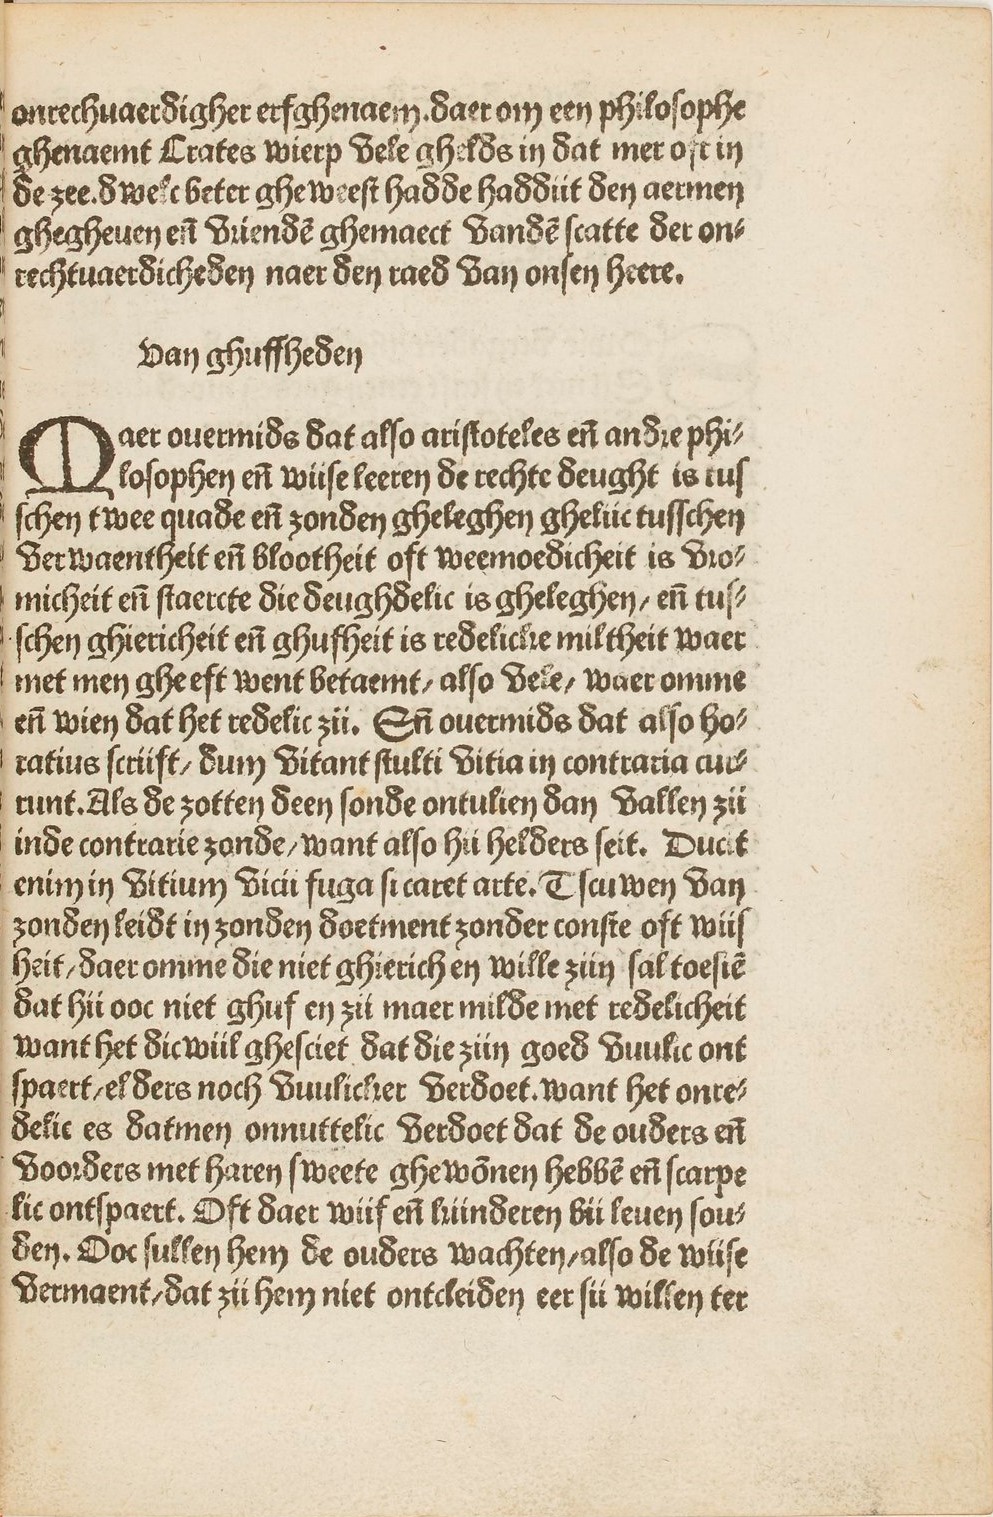 onrechuaerdigher erfghenaem.daer om een philosophe
ghenaemt Crates wierp vele ghelds in dat mer oft in
de zee.dwelc beter gheweest hadde haddiit den aermen
ghegheuen eñ vriendē ghemaect vandē scatte der on-
rechtuaerdicheden naer den raed van onsen heere.
Van ghuffheden
Maer ouermids dat also aristoteles eñ andre phi-
losophen eñ wiise leeren de rechte deught is tus
schen twee quade eñ zonden gheleghen gheliic tusschen
verwaentheit eñ blootheit oft weemoedicheit is vro-
micheit eñ staercte die deughdelic is gheleghen/ eñ tus-
schen ghiericheit eñ ghufheit is redelicke miltheit waer
met men gheeft went betaemt/ also vele/ waer omme
eñ wien dat het redelic zii. Eñ ouermids dat also ho-
ratius scriift/ dum vitant stulti vitia in contraria cur-
runt.Als de zotten deen sonde ontulien dan vallen zii
inde contrarie zonde/want also hii helders seit. Ducit
enim in vitium vicii fuga si caret arte.T scuwen van
zonden leidt in zonden doetment zonder conste oft wiis
heit/daer omme die niet ghierich en wille ziin sal toesiē
dat hii ooc niet ghuf en zii maer milde met redelicheit
want het dicwiil ghesciet dat die ziin goed vuulic ont
spaert/elders noch vuulicker verdoet.want het onre-
delic es datmen onnuttelic verdoet dat de ouders eñ
voorders met haren sweete ghewōnen hebbē eñ scarpe
lic ontspaert. Oft daer wiif eñ kiinderen bii leuen sou-
den. Ooc sullen hem de ouders wachten/also de wiise
vermaent/dat zii hem niet ontcleiden eer sii willen ter